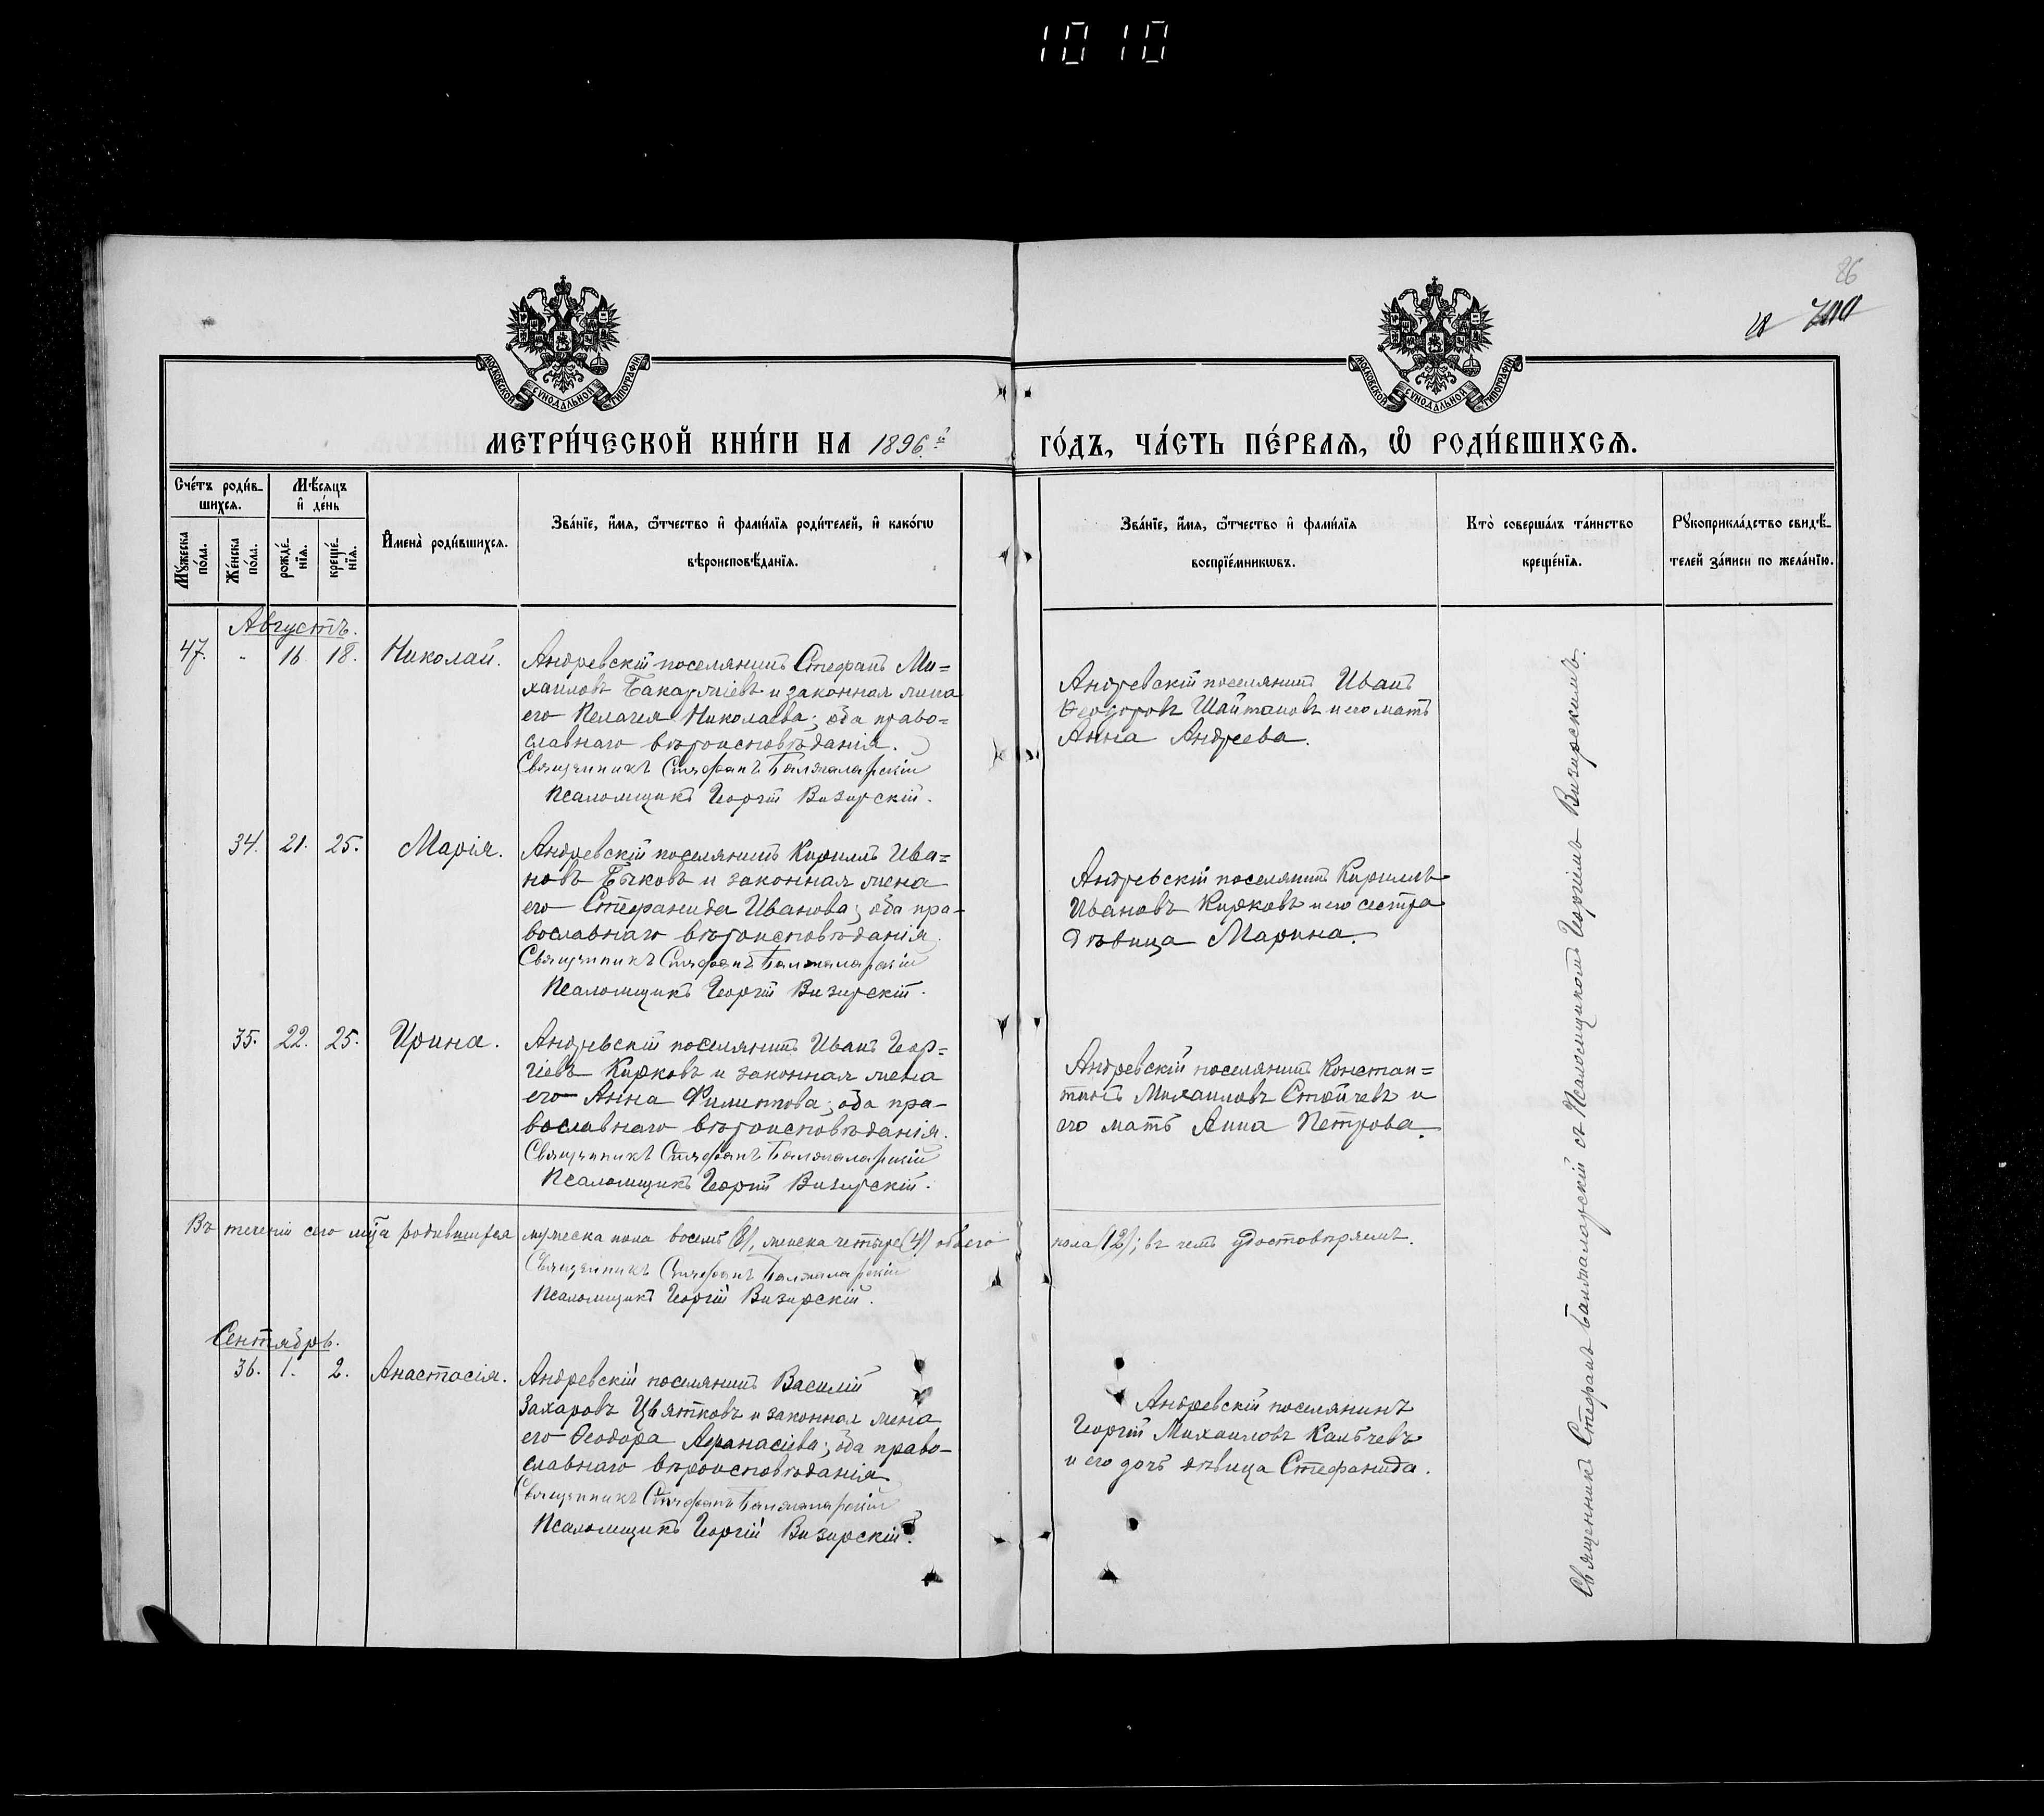 1010
86
МОСКОВСКОЙ СѴНОДАЛЬНОЙ ТИПОГРАФІИ
МОСКОВСКОЙ СѴНОДАЛЬНОЙ ТИПОГРАФІИ
МЕТРИ́ЧЕСКОЙ КНИ́ГИ НА 1896.й ГО́ДЪ, ЧА́СТЬ ПЕ́РВАЯ, Ѡ҆ РОДИ́ВШИХСѦ.
Сче́тъ роди́в-
шихсѧ.
Мѣ́сѧцъ
и҆ де́нь
Мꙋ́жеска
по́ла.
Же́нска
по́ла.
рожде́-
нїѧ.
креще́-
нїѧ.
И҆мена̀ роди́вшихсѧ.
Зва́нїе, и҆́мѧ, ѻ҆́тчество и҆ фами́лїѧ роди́телей, и҆ како́гѡ
вѣроисповѣ́данїѧ.
Зва́нїе, и҆́мѧ, ѻ҆́тчество и҆ фами́лїѧ
воспрїе́мникѡвъ.
Кто̀ соверша́лъ та́инство
креще́нїѧ.
Рꙋкоприкла́дство свидѣ́-
телей за́писи по жела́нїю.
Августъ.
47. " 16 18. Николай.
Андревскій поселянинъ Стефанъ Ми=
хаиловъ Бакарджіевъ и законная жена
его Пелагея Николаева; оба право=
славнаго вѣроисповѣданія.
Священникъ Стефанъ Балжаларскій
Псаломщикъ Георгій Визирскій.
Андревскій поселянинъ Иванъ
Ѳеодоровъ Шайтановъ и его мать
Анна Андреева.
34. 21. 25. Марія.
Андревскій поселянинъ Кириллъ Ива=
новъ Бычковъ и законная жена
его Стефанида Иванова; оба пра-
вославнаго вѣроисповѣданія.
Священникъ Стефанъ Балжаларскій
Псаломщикъ Георгій Визирскій.
Андревскій поселянинъ Кириллъ
Ивановъ Кирковъ и его сестра
дѣвица Марина.
35. 22. 25. Ирина.
Андревскій поселянинъ Иванъ Геор=
гіевъ Кирковъ и законная жена
его Анна Филиппова; оба пра-
вославнаго вѣроисповѣданія.
Священникъ Стефанъ Балжаларскій
Псаломщикъ Георгій Визирскій.
Андревскій поселянинъ Констан=
тинъ Михаиловъ Стойчевъ и
его мать Анна Петрова.
Въ теченіи сего мѣца родившихся мужеска пола восемь (8), женска четыре (4) обоего пола (12); въ чемъ удостовѣряемъ.
Священникъ Стефанъ Балжаларскій
Псаломщикъ Георгій Визирскій.
Сентябрь.
36. 1. 2. Анастасія.
Андревскій поселянинъ Василій
Захаровъ Цвятковъ и законная жена
его Ѳеодора Афанасіева; оба право-
славнаго вѣроисповѣданія
Священникъ Стефанъ Балжаларскій
Псаломщикъ Георгій Визирскій.
Андревскій поселянинъ
Георгій Михаиловъ Калчевъ
и его дочь дѣвица Стефанида.
Священникъ Стефанъ Балжаларскій съ Псаломщикомъ Георгіемъ Визирскимъ.